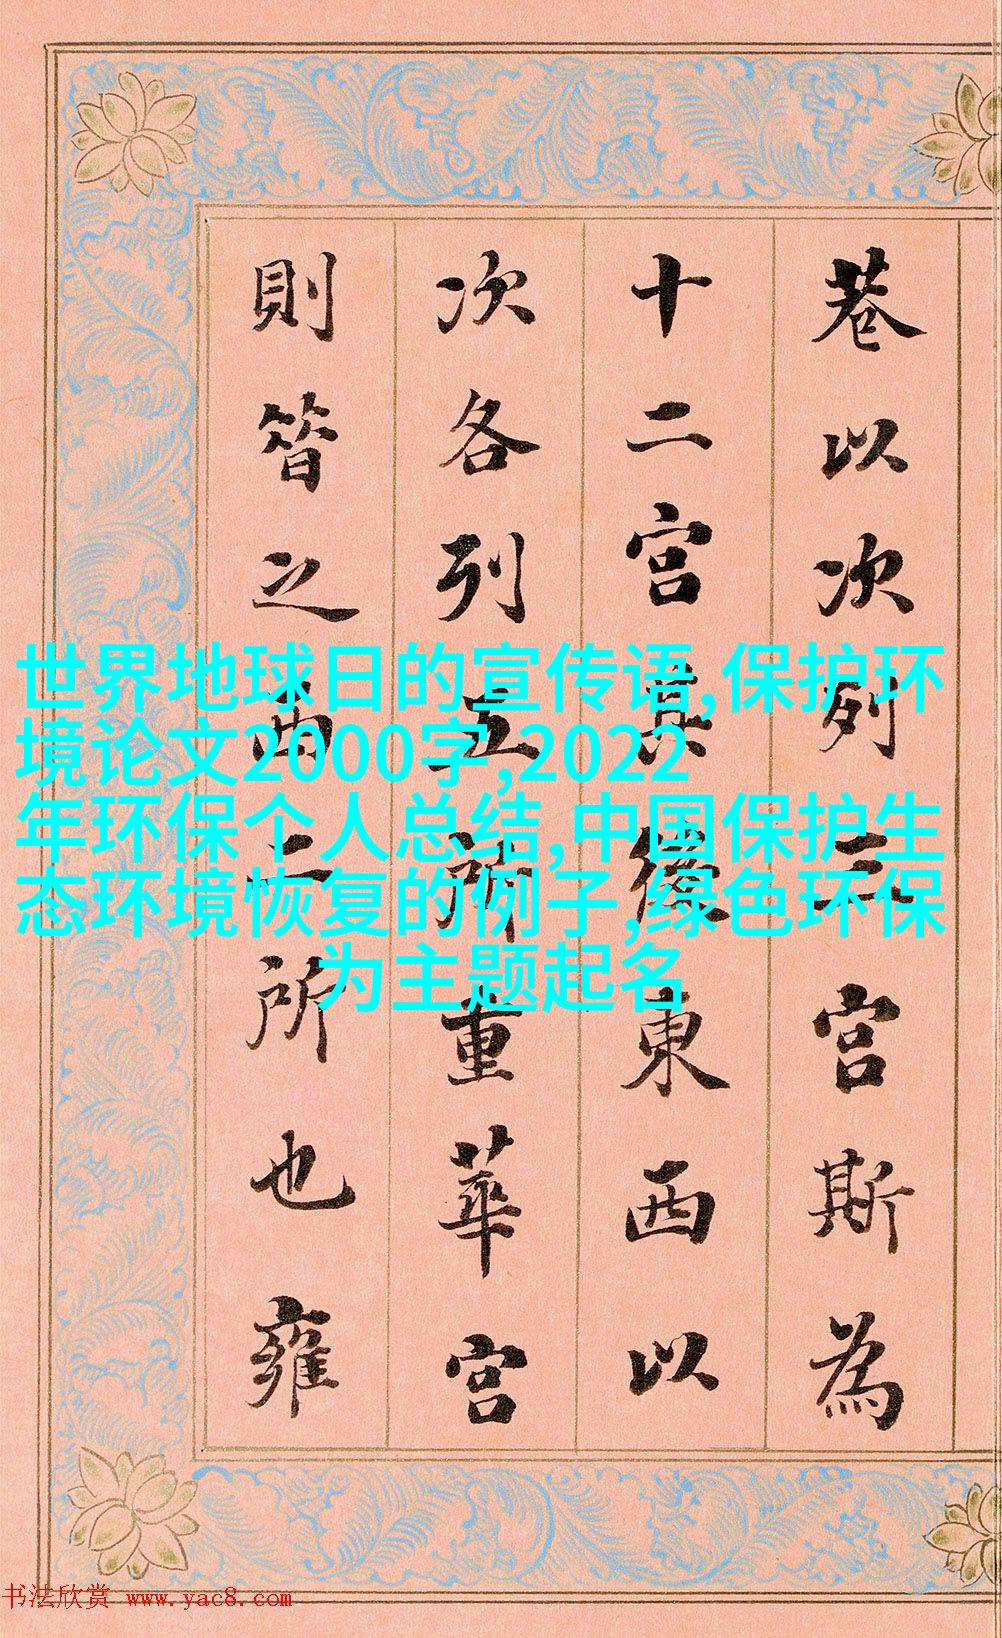 巷以次列二宫斯為
十二宫其後東西以
次各列五所重華宫
則簮之西二所也雍
世界地球日的宣传语,保护环
境论文2000字,2022
年环保个人总结,中国保护生
态环境恢复的例子,绿色环保
为主题起名
书法欣赏 www.yac8.com